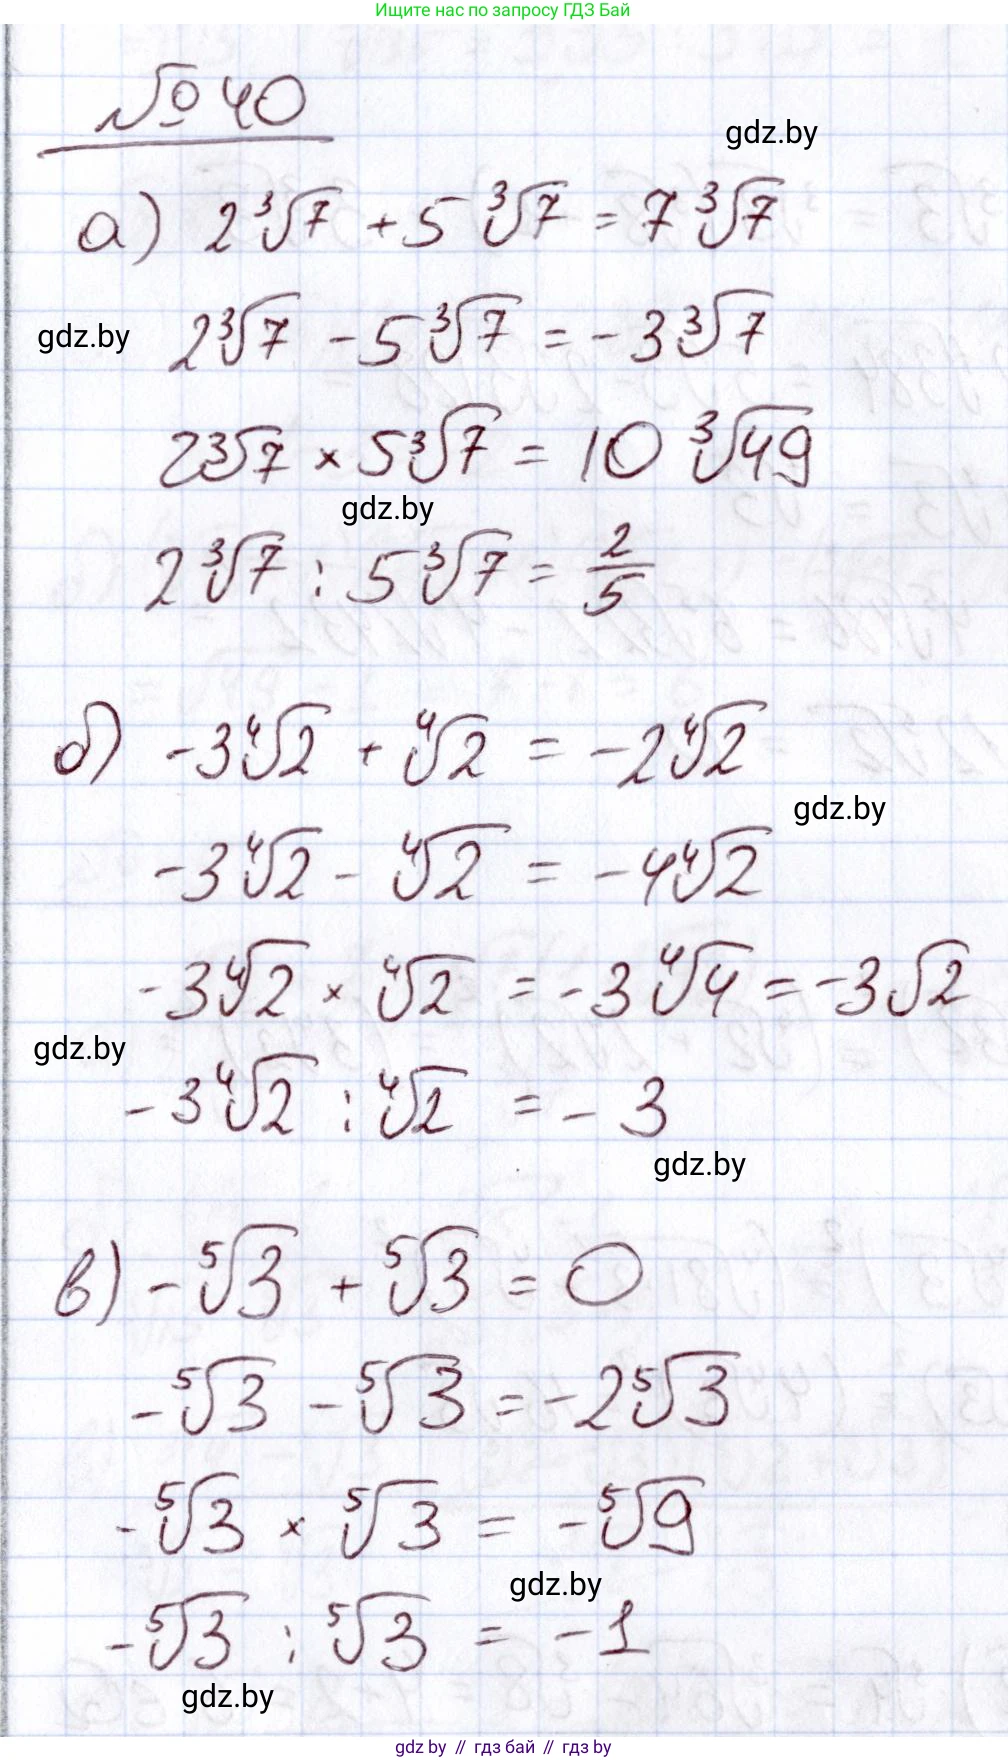 Ищите нас по запросу ГДЗ Бай
№ 40
gdz.by
а) 2∛7 + 5∛7 = 7∛7
gdz.by
2∛7 - 5∛7 = -3∛7
2∛7 × 5∛7 = 10∛49
gdz.by
2∛7 : 5∛7 = 2/5
б) -3∜2 + ∜2 = -2∜2
gdz.by
-3∜2 - ∜2 = -4∜2
-3∜2 × ∜2 = -3∜4 = -3√2
gdz.by
-3∜2 : ∜2 = -3
gdz.by
в) -⁵√3 + ⁵√3 = 0
-⁵√3 - ⁵√3 = -2⁵√3
-⁵√3 × ⁵√3 = -⁵√9
gdz.by
-⁵√3 : ⁵√3 = -1
gdz.by
gdz.by // гдз бай // gdz.by